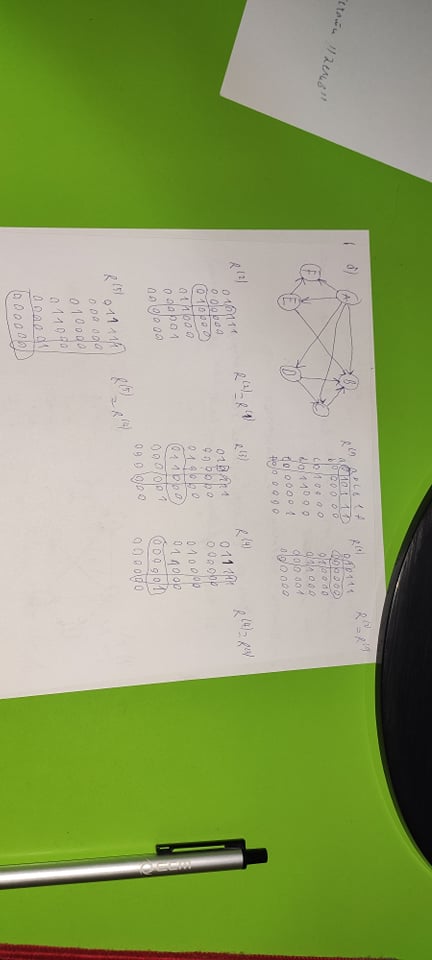 A B
F E D
R⁽⁰⁾ R⁽¹⁾ R⁽¹⁾ = R⁽⁰⁾
0 1 0 1 1 1
0 0 0 0 0 0
0 1 0 0 0 0
0 1 1 0 0 0
0 0 0 0 0 1
0 0 0 0 0 0
0 1 0 1 1 1
0 0 0 0 0 0
0 1 0 0 0 0
0 1 1 0 0 0
0 0 0 0 0 1
0 0 0 0 0 0
R⁽²⁾ R⁽²⁾ = R⁽¹⁾
0 1 0 1 1 1
0 0 0 0 0 0
0 1 0 0 0 0
0 1 1 0 0 0
0 0 0 0 0 1
0 0 0 0 0 0
R⁽³⁾
0 1 0 1 1 1
0 0 0 0 0 0
0 1 0 0 0 0
0 1 1 0 0 0
0 0 0 0 0 1
0 0 0 0 0 0
R⁽⁴⁾ R⁽⁴⁾ = R⁽³⁾
0 1 1 1 1 1
0 0 0 0 0 0
0 1 0 0 0 0
0 1 1 0 0 0
0 0 0 0 0 1
0 0 0 0 0 0
R⁽⁵⁾ R⁽⁵⁾ = R⁽⁴⁾
0 1 1 1 1 1
0 0 0 0 0 0
0 1 0 0 0 0
0 1 1 0 0 0
0 0 0 0 0 1
0 0 0 0 0 0